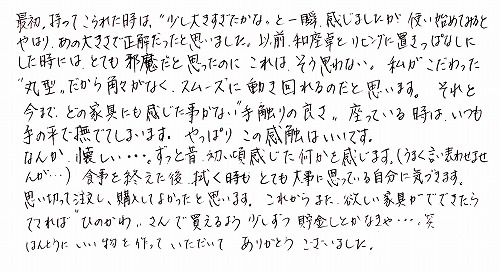 最初、持ってこられた時は、"少し大きすぎたかな"と一瞬、感じましたが 使い始めてみると
やはり、あの大きさで正解だったと思いました。以前、和座卓とリビングに置きっぱなしに
した時には、とても邪魔だと思ったのに これは、そう思わない。 私がこだわった
"丸型"だから角々がなく、スムーズに動き回れるのだと思います。 それと
今まで、どの家具にも感じた事がない"手触りの良さ"。座っている時は、いつも
手の平で撫でてしまいます。 やっぱり この感触はいいです。
なんか、懐しい・・・。ずっと昔、幼い頃感じた何かを感じます。(うまく言い表わせませ
んが…) 食事を終えた後、拭く時も とても大事に思っている自分に気づきます。
思い切って注文し、購入してよかったと思います。 これからまた、欲しい家具ができてきたら
できれば "ひのかわ"さんで買えるよう 少しずつ 貯金しとかなきゃ・・・。笑
ほんとうに いい物を作って いただいて ありがとう ございました。